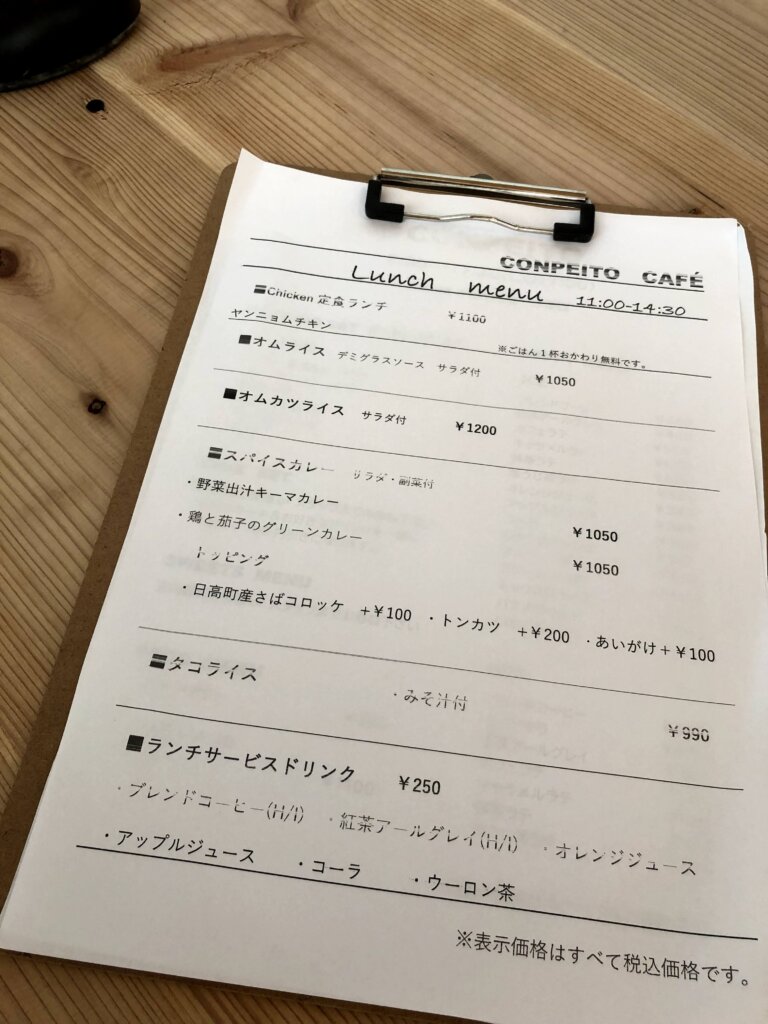 CONPEITO CAFÉ
Lunch menu 11:00-14:30
■Chicken 定食ランチ ￥1100
ヤンニョムチキン ※ごはん１杯おかわり無料です。
■オムライス デミグラスソース サラダ付 ￥1050
■オムカツライス サラダ付 ￥1200
■スパイスカレー サラダ・副菜付
・野菜出汁キーマカレー ￥1050
・鶏と茄子のグリーンカレー ￥1050
トッピング
・日高町産さばコロッケ +￥100 ・トンカツ +￥200 ・あいがけ＋￥100
■タコライス ・みそ汁付 ￥990
■ランチサービスドリンク ￥250
・ブレンドコーヒー(H/I) ・紅茶アールグレイ(H/I) ・オレンジジュース
・アップルジュース ・コーラ ・ウーロン茶
※表示価格はすべて税込価格です。